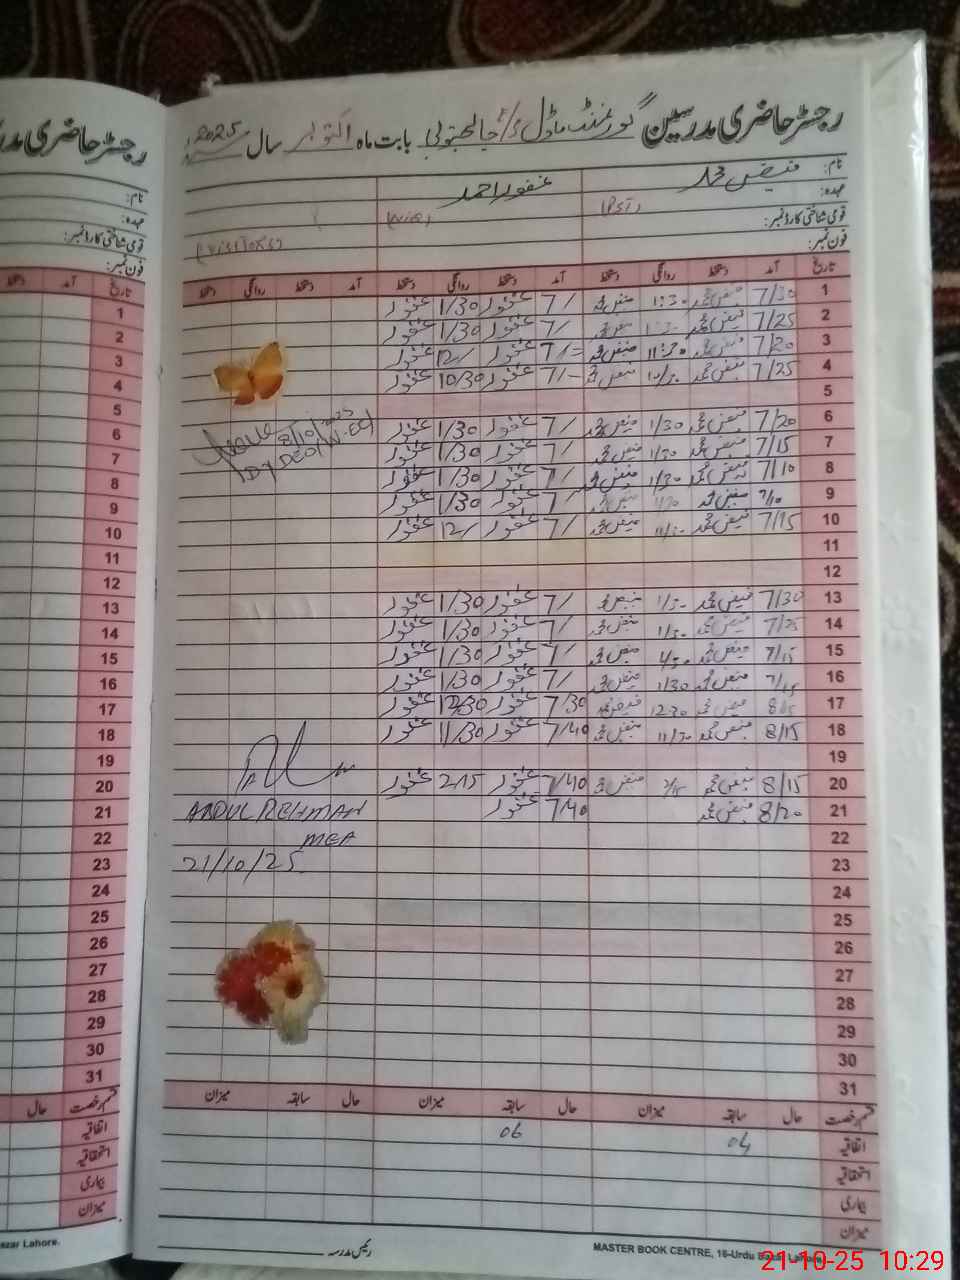 رجسٹر حاضری مدرسین گورنمنٹ ماڈل بابت ماہ اکتوبر سال 2025
نام: فیض محمد غفور احمد
عہدہ: (PST)
قومی شناختی کارڈ نمبر:
فون نمبر: (VISITORS)
تاریخ آمد دستخط روانگی دستخط آمد دستخط روانگی دستخط آمد دستخط روانگی دستخط
1 7/30 فیض محمد 1:30 فیض محمد 7/ غفور 1/30 غفور
2 7/25 فیض محمد فیض محمد 7/ غفور 1/30 غفور
3 7/20 فیض محمد 11:30 فیض محمد 7/ غفور 12/ غفور
4 7/25 فیض محمد 10/30 فیض محمد 7/ غفور 10/30 غفور
5
6 7/20 فیض محمد 1/30 فیض محمد 7/ غفور 1/30 غفور
7 7/15 فیض محمد 1/30 فیض محمد 7/ غفور 1/30 غفور
8 7/10 فیض محمد 1/30 فیض محمد 7/ غفور 1/30 غفور
9 7/10 فیض محمد فیض محمد 7/ غفور 1/30 غفور
10 7/15 فیض محمد فیض محمد 7/ غفور 12/ غفور
11
12
13 7/30 فیض محمد 1/30 فیض محمد 7/ غفور 1/30 غفور
14 7/25 فیض محمد 1/30 فیض محمد 7/ غفور 1/30 غفور
15 7/15 فیض محمد 1/30 فیض محمد 7/ غفور 1/30 غفور
16 7/15 فیض محمد 1/30 فیض محمد 7/ غفور 1/30 غفور
17 8/15 فیض محمد 12:30 فیض محمد 7/30 غفور 12/30 غفور
18 8/15 فیض محمد 11/30 فیض محمد 7/40 غفور 11/30 غفور
19
20 8/15 فیض محمد 2/15 فیض محمد 7/40 غفور 2/15 غفور
21 8/20 فیض محمد 7/40 غفور
22
23
24
25
26
27
28
29
30
31
8/10/2025
Dy DEO (W-EE)
ABDUL REHMAN
MEA
21/10/25
قسم رخصت حال سابقہ میزان حال سابقہ میزان حال سابقہ میزان
اتفاقیہ 04 06
استحقاقیہ
بیماری
میزان
رئیس مدرسہ
MASTER BOOK CENTRE, 16-Urdu Bazar Lahore.
رجسٹر حاضری
نام:
عہدہ:
قومی شناختی کارڈ نمبر:
فون نمبر:
تاریخ آمد دستخط
1
2
3
4
5
6
7
8
9
10
11
12
13
14
15
16
17
18
19
20
21
22
23
24
25
26
27
28
29
30
31
قسم رخصت حال
اتفاقیہ
استحقاقیہ
بیماری
میزان
azar Lahore.
21-10-25 10:29